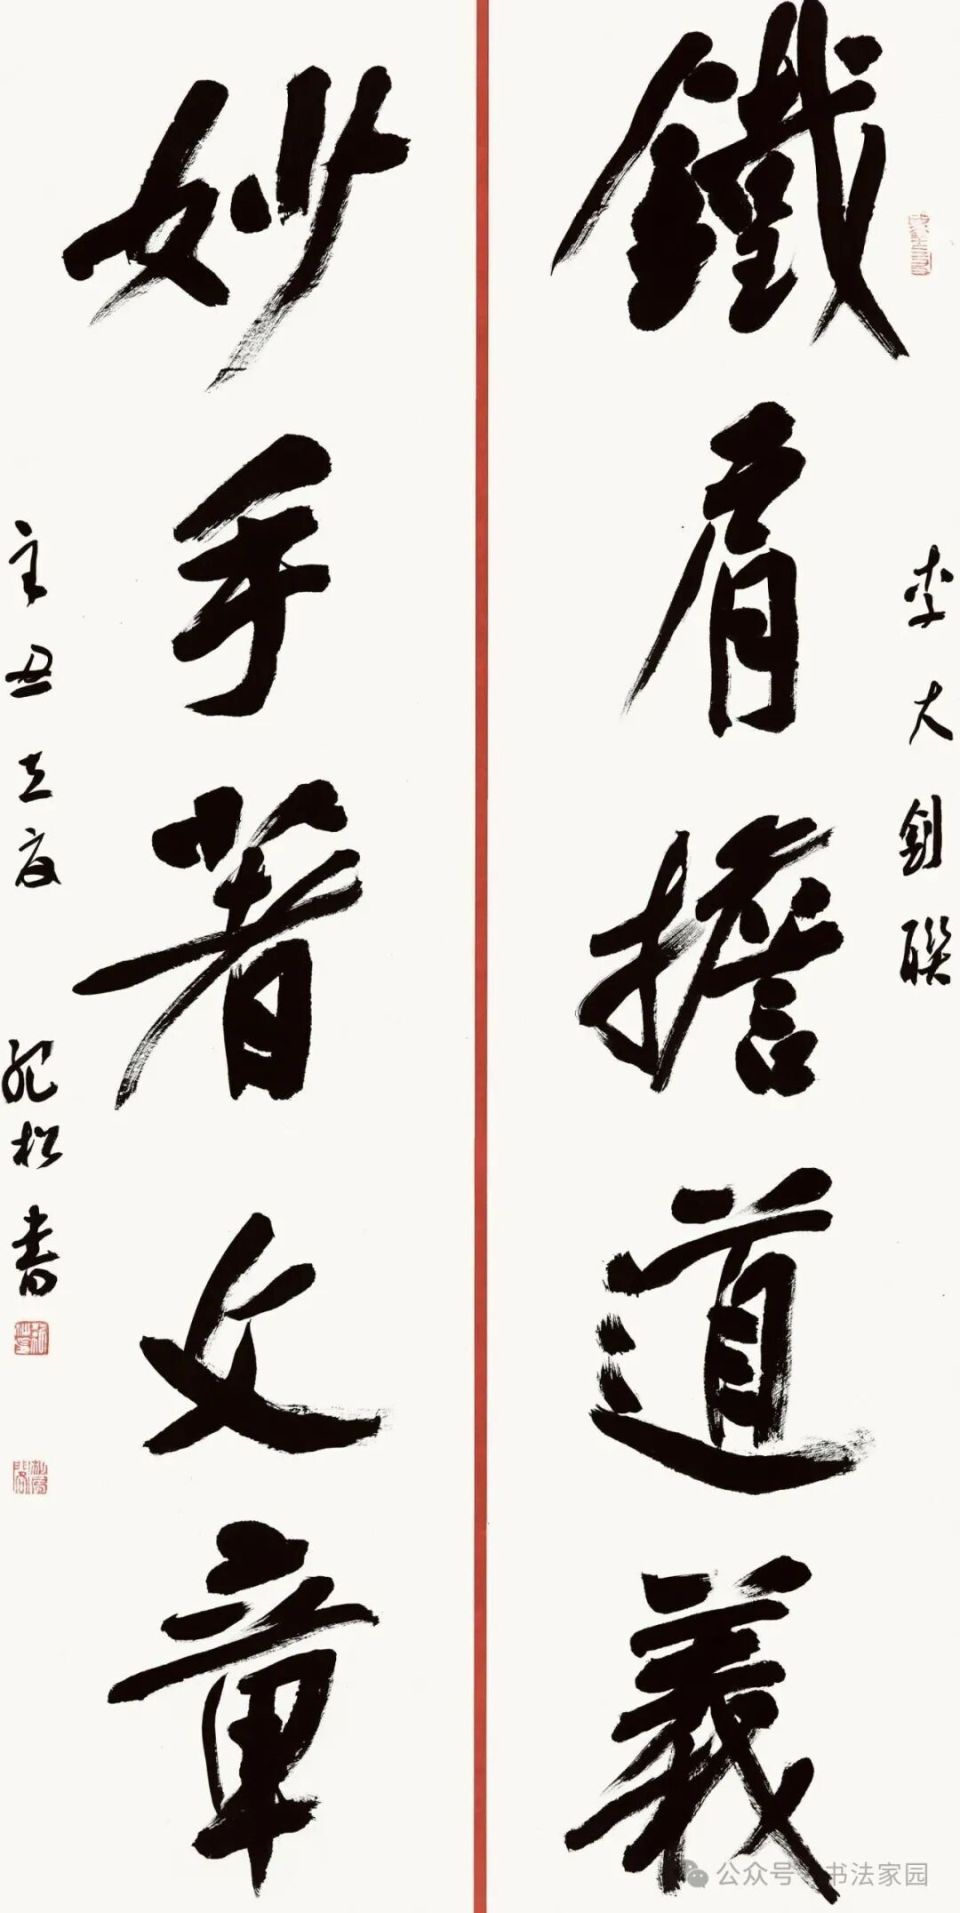 鐵肩擔道義
李大釗聯
妙手著文章
辛丑立夏
松書
公众号·书法家园